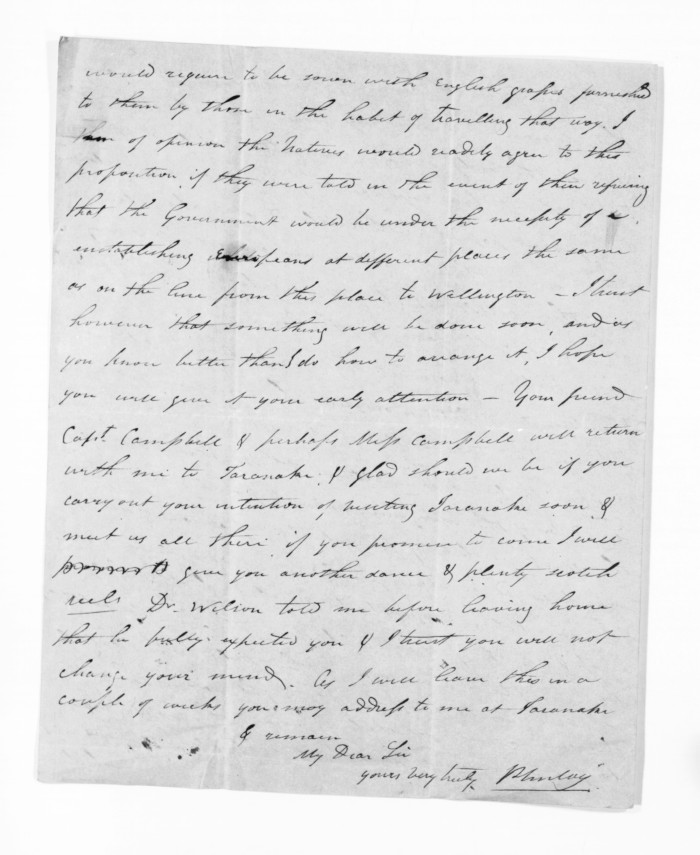 would require to be sown with English grasses furnished
to them by those in the habit of travelling that way. I
am of opinion the Natives would readily agree to this
proposition, if they were told in the event of their refusing
that the Government would be under the necessity of
establishing Europeans at different places the same
as on the line from this place to Wellington – I trust
however that something will be done soon, and as
you know better than I do how to arrange it, I hope
you will give it your early attention – Your friend
Capt. Campbell & perhaps Miss Campbell will return
with me to Taranaki, & glad should we be if you
carry out your intention of visiting Taranaki soon &
meet us all there, if you promise to come I will
give you another dance & plenty scotch
reels Dr. Wilson told me before leaving home
that he fully expected you & I trust you will not
change your mind. As I will leave this in a
couple of weeks you may address to me at Taranaki
& remain
My Dear Sir
yours very truly